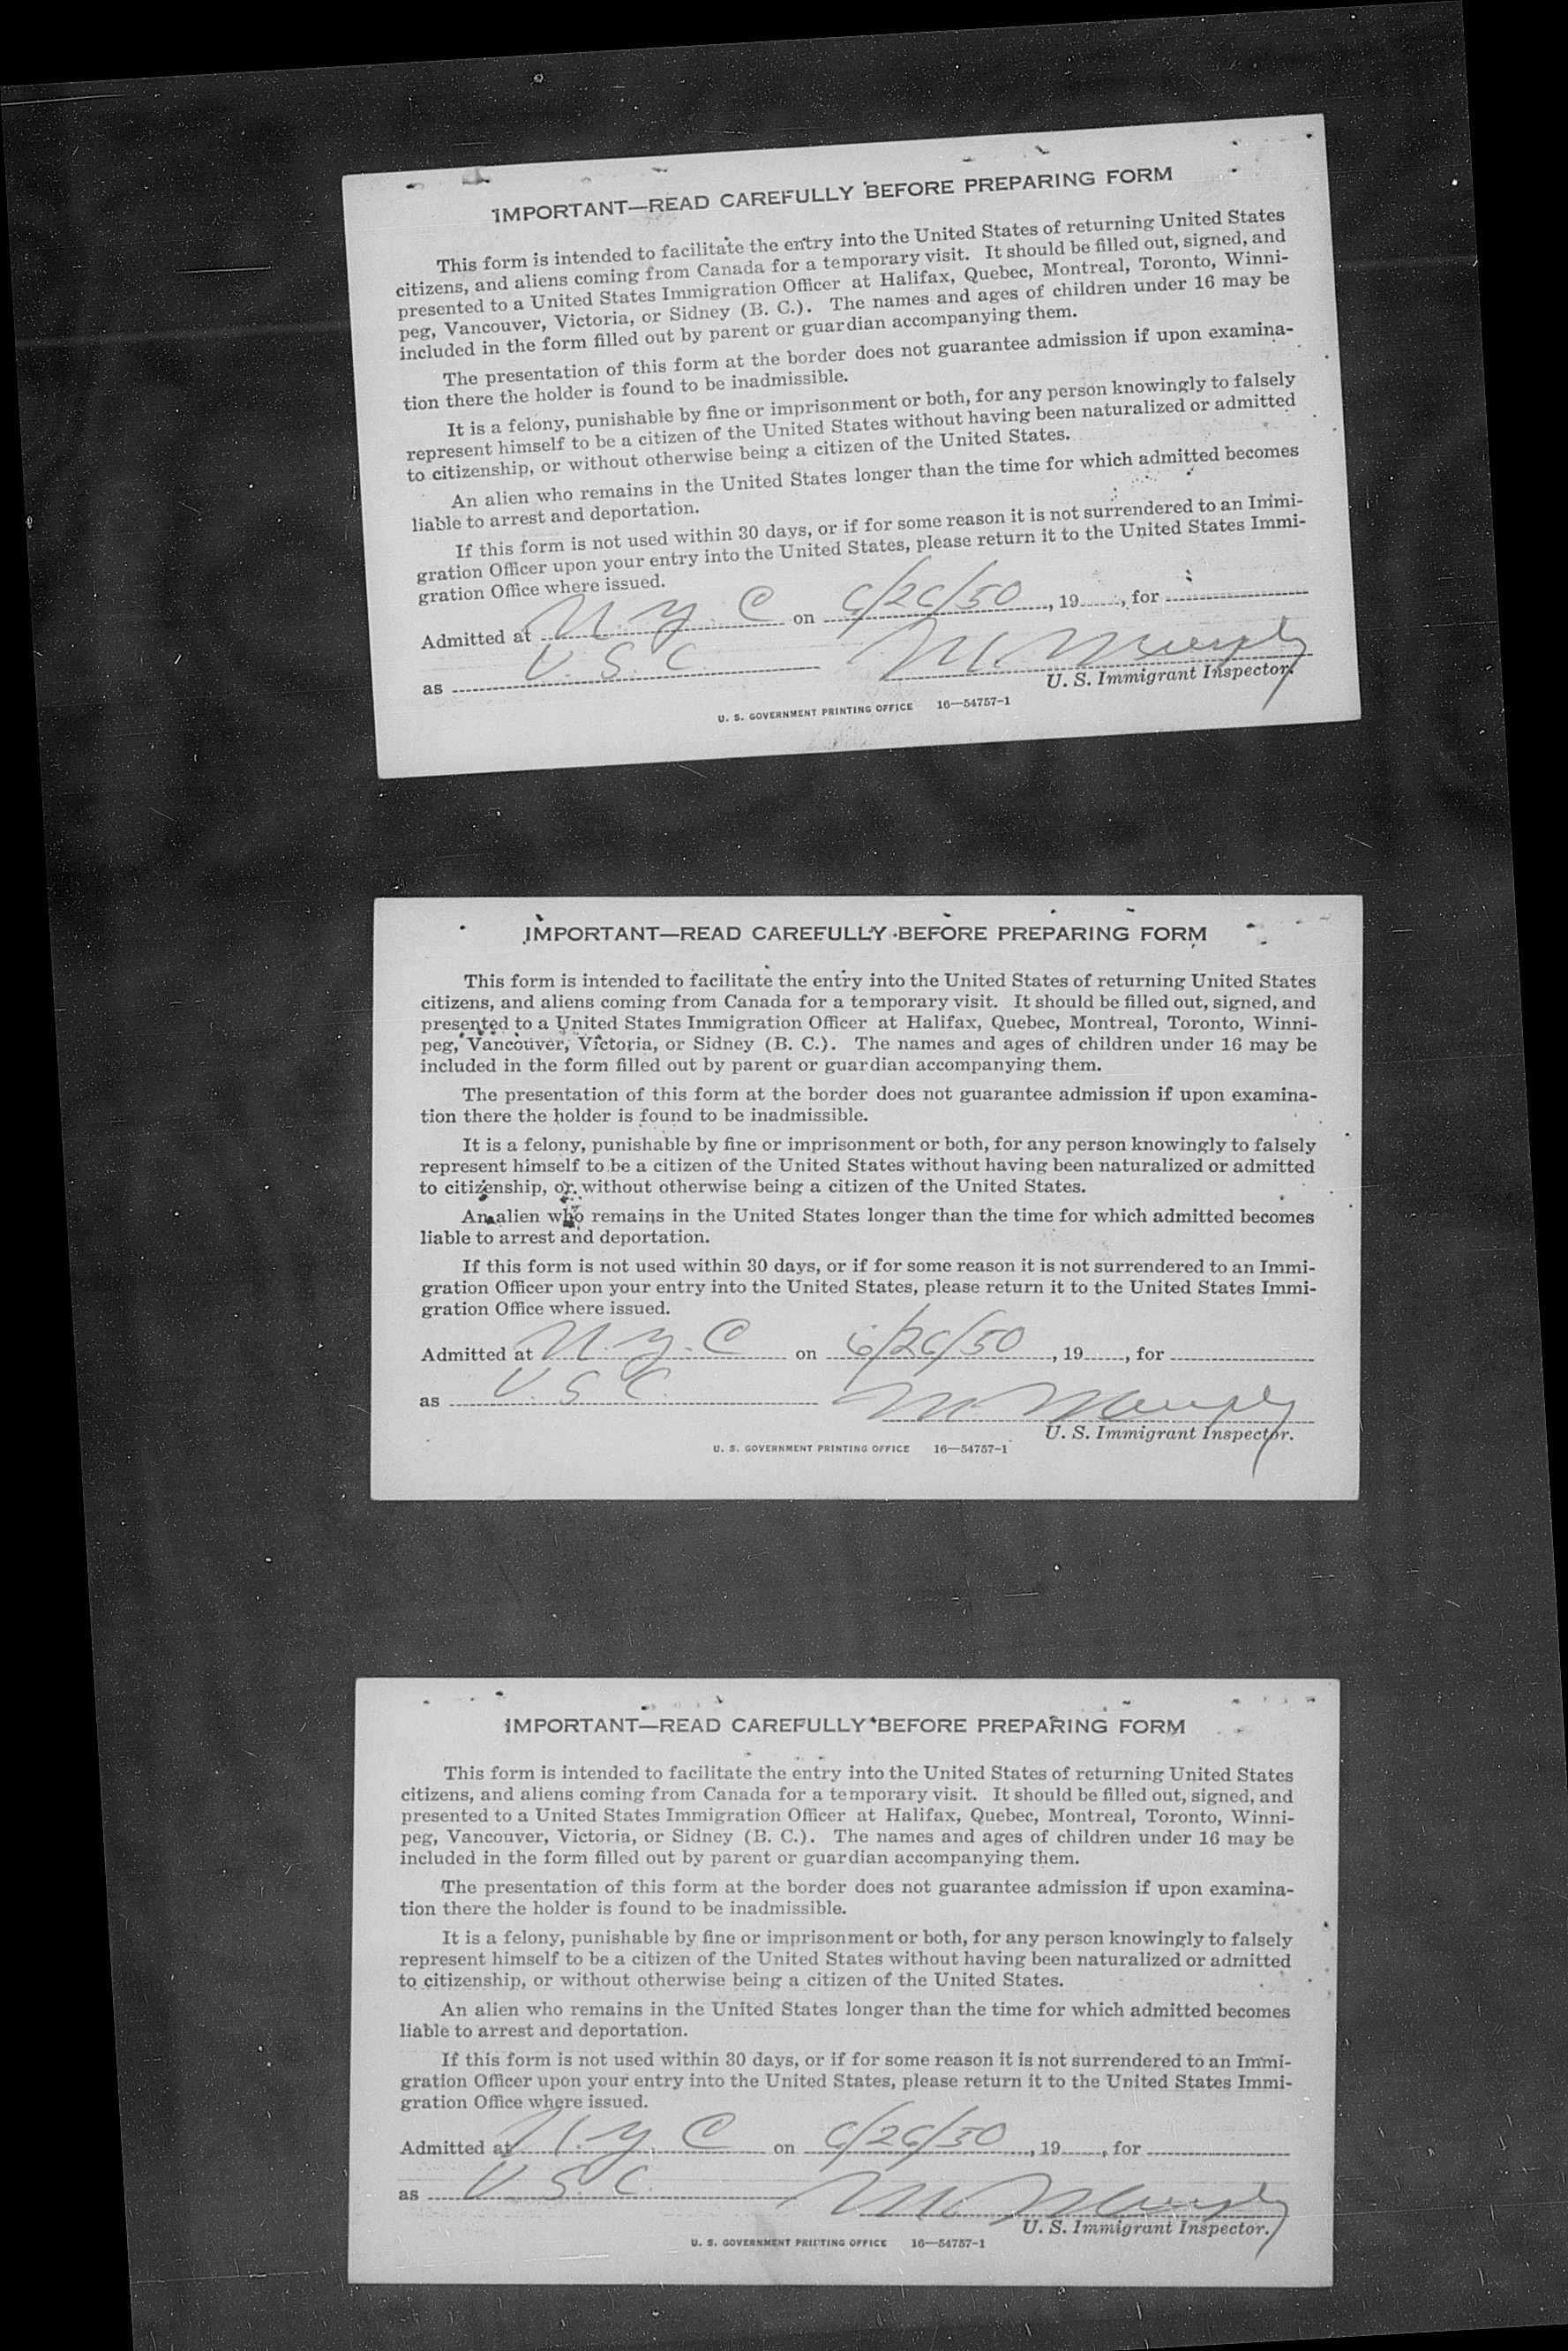 IMPORTANT—READ CAREFULLY BEFORE PREPARING FORM
This form is intended to facilitate the entry into the United States of returning United States
citizens, and aliens coming from Canada for a temporary visit. It should be filled out, signed, and
presented to a United States Immigration Officer at Halifax, Quebec, Montreal, Toronto, Winni-
peg, Vancouver, Victoria, or Sidney (B. C.). The names and ages of children under 16 may be
included in the form filled out by parent or guardian accompanying them.
The presentation of this form at the border does not guarantee admission if upon examina-
tion there the holder is found to be inadmissible.
It is a felony, punishable by fine or imprisonment or both, for any person knowingly to falsely
represent himself to be a citizen of the United States without having been naturalized or admitted
to citizenship, or without otherwise being a citizen of the United States.
An alien who remains in the United States longer than the time for which admitted becomes
liable to arrest and deportation.
If this form is not used within 30 days, or if for some reason it is not surrendered to an Immi-
gration Officer upon your entry into the United States, please return it to the United States Immi-
gration Office where issued.
Admitted at N.Y.C on 6/26/50, 19......, for
as U.S.C. M Murphy
U. S. Immigrant Inspector.
U. S. GOVERNMENT PRINTING OFFICE 16—54757-1
IMPORTANT—READ CAREFULLY BEFORE PREPARING FORM
This form is intended to facilitate the entry into the United States of returning United States
citizens, and aliens coming from Canada for a temporary visit. It should be filled out, signed, and
presented to a United States Immigration Officer at Halifax, Quebec, Montreal, Toronto, Winni-
peg, Vancouver, Victoria, or Sidney (B. C.). The names and ages of children under 16 may be
included in the form filled out by parent or guardian accompanying them.
The presentation of this form at the border does not guarantee admission if upon examina-
tion there the holder is found to be inadmissible.
It is a felony, punishable by fine or imprisonment or both, for any person knowingly to falsely
represent himself to be a citizen of the United States without having been naturalized or admitted
to citizenship, or without otherwise being a citizen of the United States.
An alien who remains in the United States longer than the time for which admitted becomes
liable to arrest and deportation.
If this form is not used within 30 days, or if for some reason it is not surrendered to an Immi-
gration Officer upon your entry into the United States, please return it to the United States Immi-
gration Office where issued.
Admitted at N.Y.C on 6/26/50, 19......, for
as U.S.C. M Murphy
U. S. Immigrant Inspector.
U. S. GOVERNMENT PRINTING OFFICE 16—54757-1
IMPORTANT—READ CAREFULLY BEFORE PREPARING FORM
This form is intended to facilitate the entry into the United States of returning United States
citizens, and aliens coming from Canada for a temporary visit. It should be filled out, signed, and
presented to a United States Immigration Officer at Halifax, Quebec, Montreal, Toronto, Winni-
peg, Vancouver, Victoria, or Sidney (B. C.). The names and ages of children under 16 may be
included in the form filled out by parent or guardian accompanying them.
The presentation of this form at the border does not guarantee admission if upon examina-
tion there the holder is found to be inadmissible.
It is a felony, punishable by fine or imprisonment or both, for any person knowingly to falsely
represent himself to be a citizen of the United States without having been naturalized or admitted
to citizenship, or without otherwise being a citizen of the United States.
An alien who remains in the United States longer than the time for which admitted becomes
liable to arrest and deportation.
If this form is not used within 30 days, or if for some reason it is not surrendered to an Immi-
gration Officer upon your entry into the United States, please return it to the United States Immi-
gration Office where issued.
Admitted at N.Y.C on 6/26/50, 19......, for
as U.S.C. M Murphy
U. S. Immigrant Inspector.
U. S. GOVERNMENT PRINTING OFFICE 16—54757-1